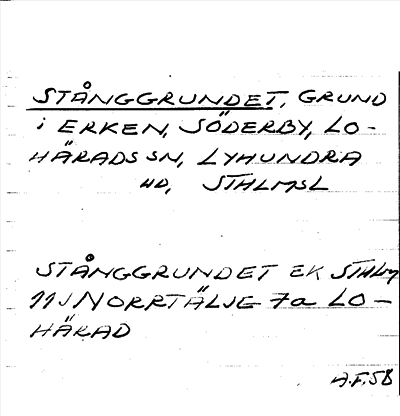 STÅNGGRUNDET, GRUND
i ERKEN, SÖDERBY, LO-
HÄRADS SN, LYHUNDRA
HD, STHLMSL
STÅNGGRUNDET EK STHLM
11J NORRTÄLJE 7a LO-
HÄRAD
A.F. 58